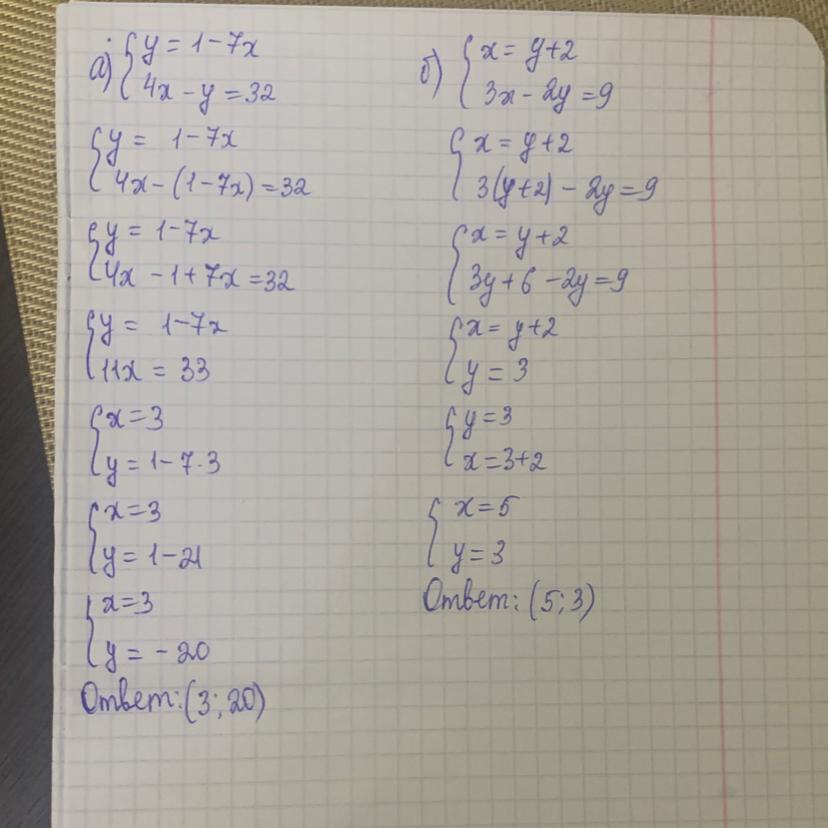 а) { y = 1 - 7x
4x - y = 32
{ y = 1 - 7x
4x - (1 - 7x) = 32
{ y = 1 - 7x
4x - 1 + 7x = 32
{ y = 1 - 7x
11x = 33
{ x = 3
y = 1 - 7·3
{ x = 3
y = 1 - 21
{ x = 3
y = - 20
Ответ: (3; 20)
б) { x = y + 2
3x - 2y = 9
{ x = y + 2
3(y + 2) - 2y = 9
{ x = y + 2
3y + 6 - 2y = 9
{ x = y + 2
y = 3
{ y = 3
x = 3 + 2
{ x = 5
y = 3
Ответ: (5; 3)